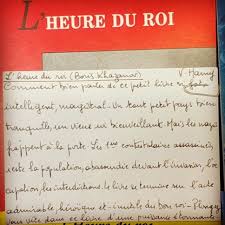 L'HEURE DU ROI
L'heure du roi (Boris Khazanov) V. Hamy
Comment bien parler de ce petit livre
intelligent, magistral. Un tout petit pays bien
tranquille, un vieux roi bienveillant. Mais les nazis
frappent à la porte. Les 1ers contestataires assassinés,
reste la population, abasourdie devant l'invasion, l'oc-
cupation, les interdictions. Le livre se termine sur l'acte
admirable, héroïque et inutile du bon roi. Plongez
vous vite dans ce livre d'une puissance étonnante
L'Heure du roi